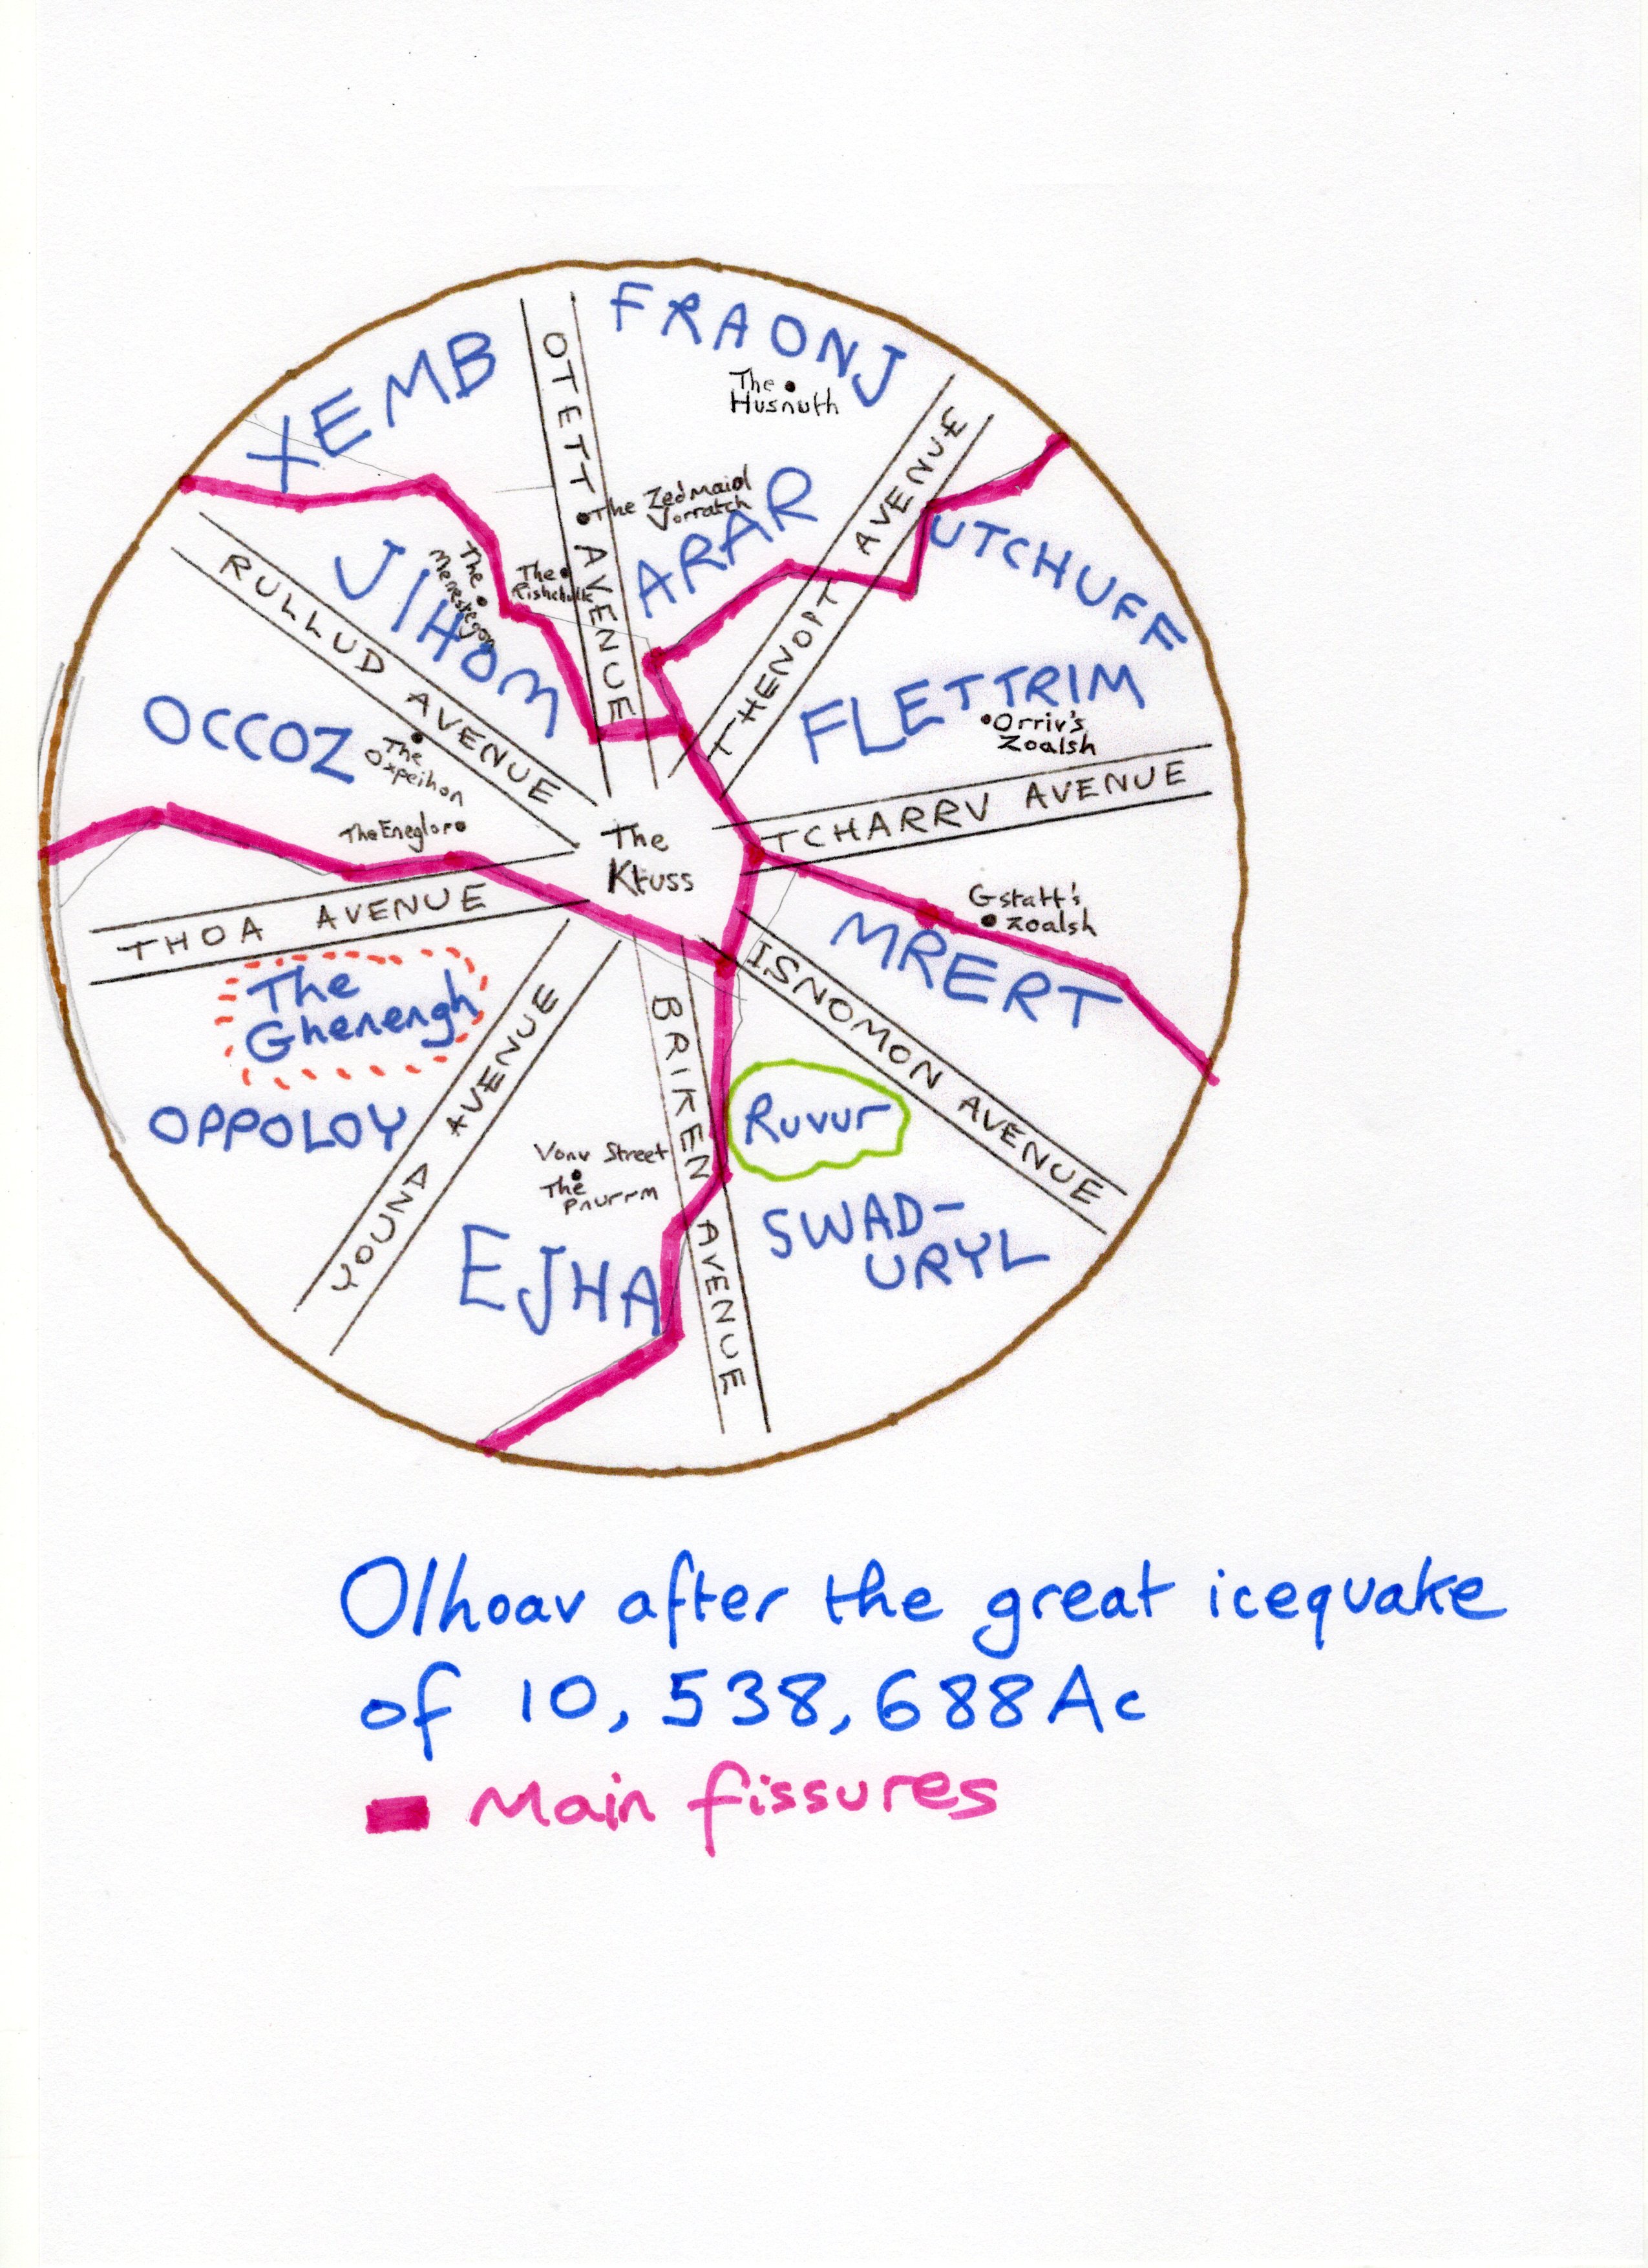 FRAONJ
XEMB
OTETT AVENUE
The
Husnuth
THENOPT AVENUE
The Zedmaid
Vorratch
ARAR
UTCHUFF
JIHOM
The
The
RULLUD AVENUE
FLETTRIM
Orriv's
Zoalsh
OCCOZ
The
Oxpeihon
TCHARRV AVENUE
The Eneglor
The
Ktuss
THOA AVENUE
Gstatt's
Zoalsh
MRERT
The
Ghenengh
ISNOMON AVENUE
YOUND AVENUE
BRIKEN AVENUE
OPPOLOY
Ruvur
Vonv Street
The
Pnurrm
EJHA
SWAD-
URYL
Olhoav after the great icequake
of 10,538,688Ac
Main fissures